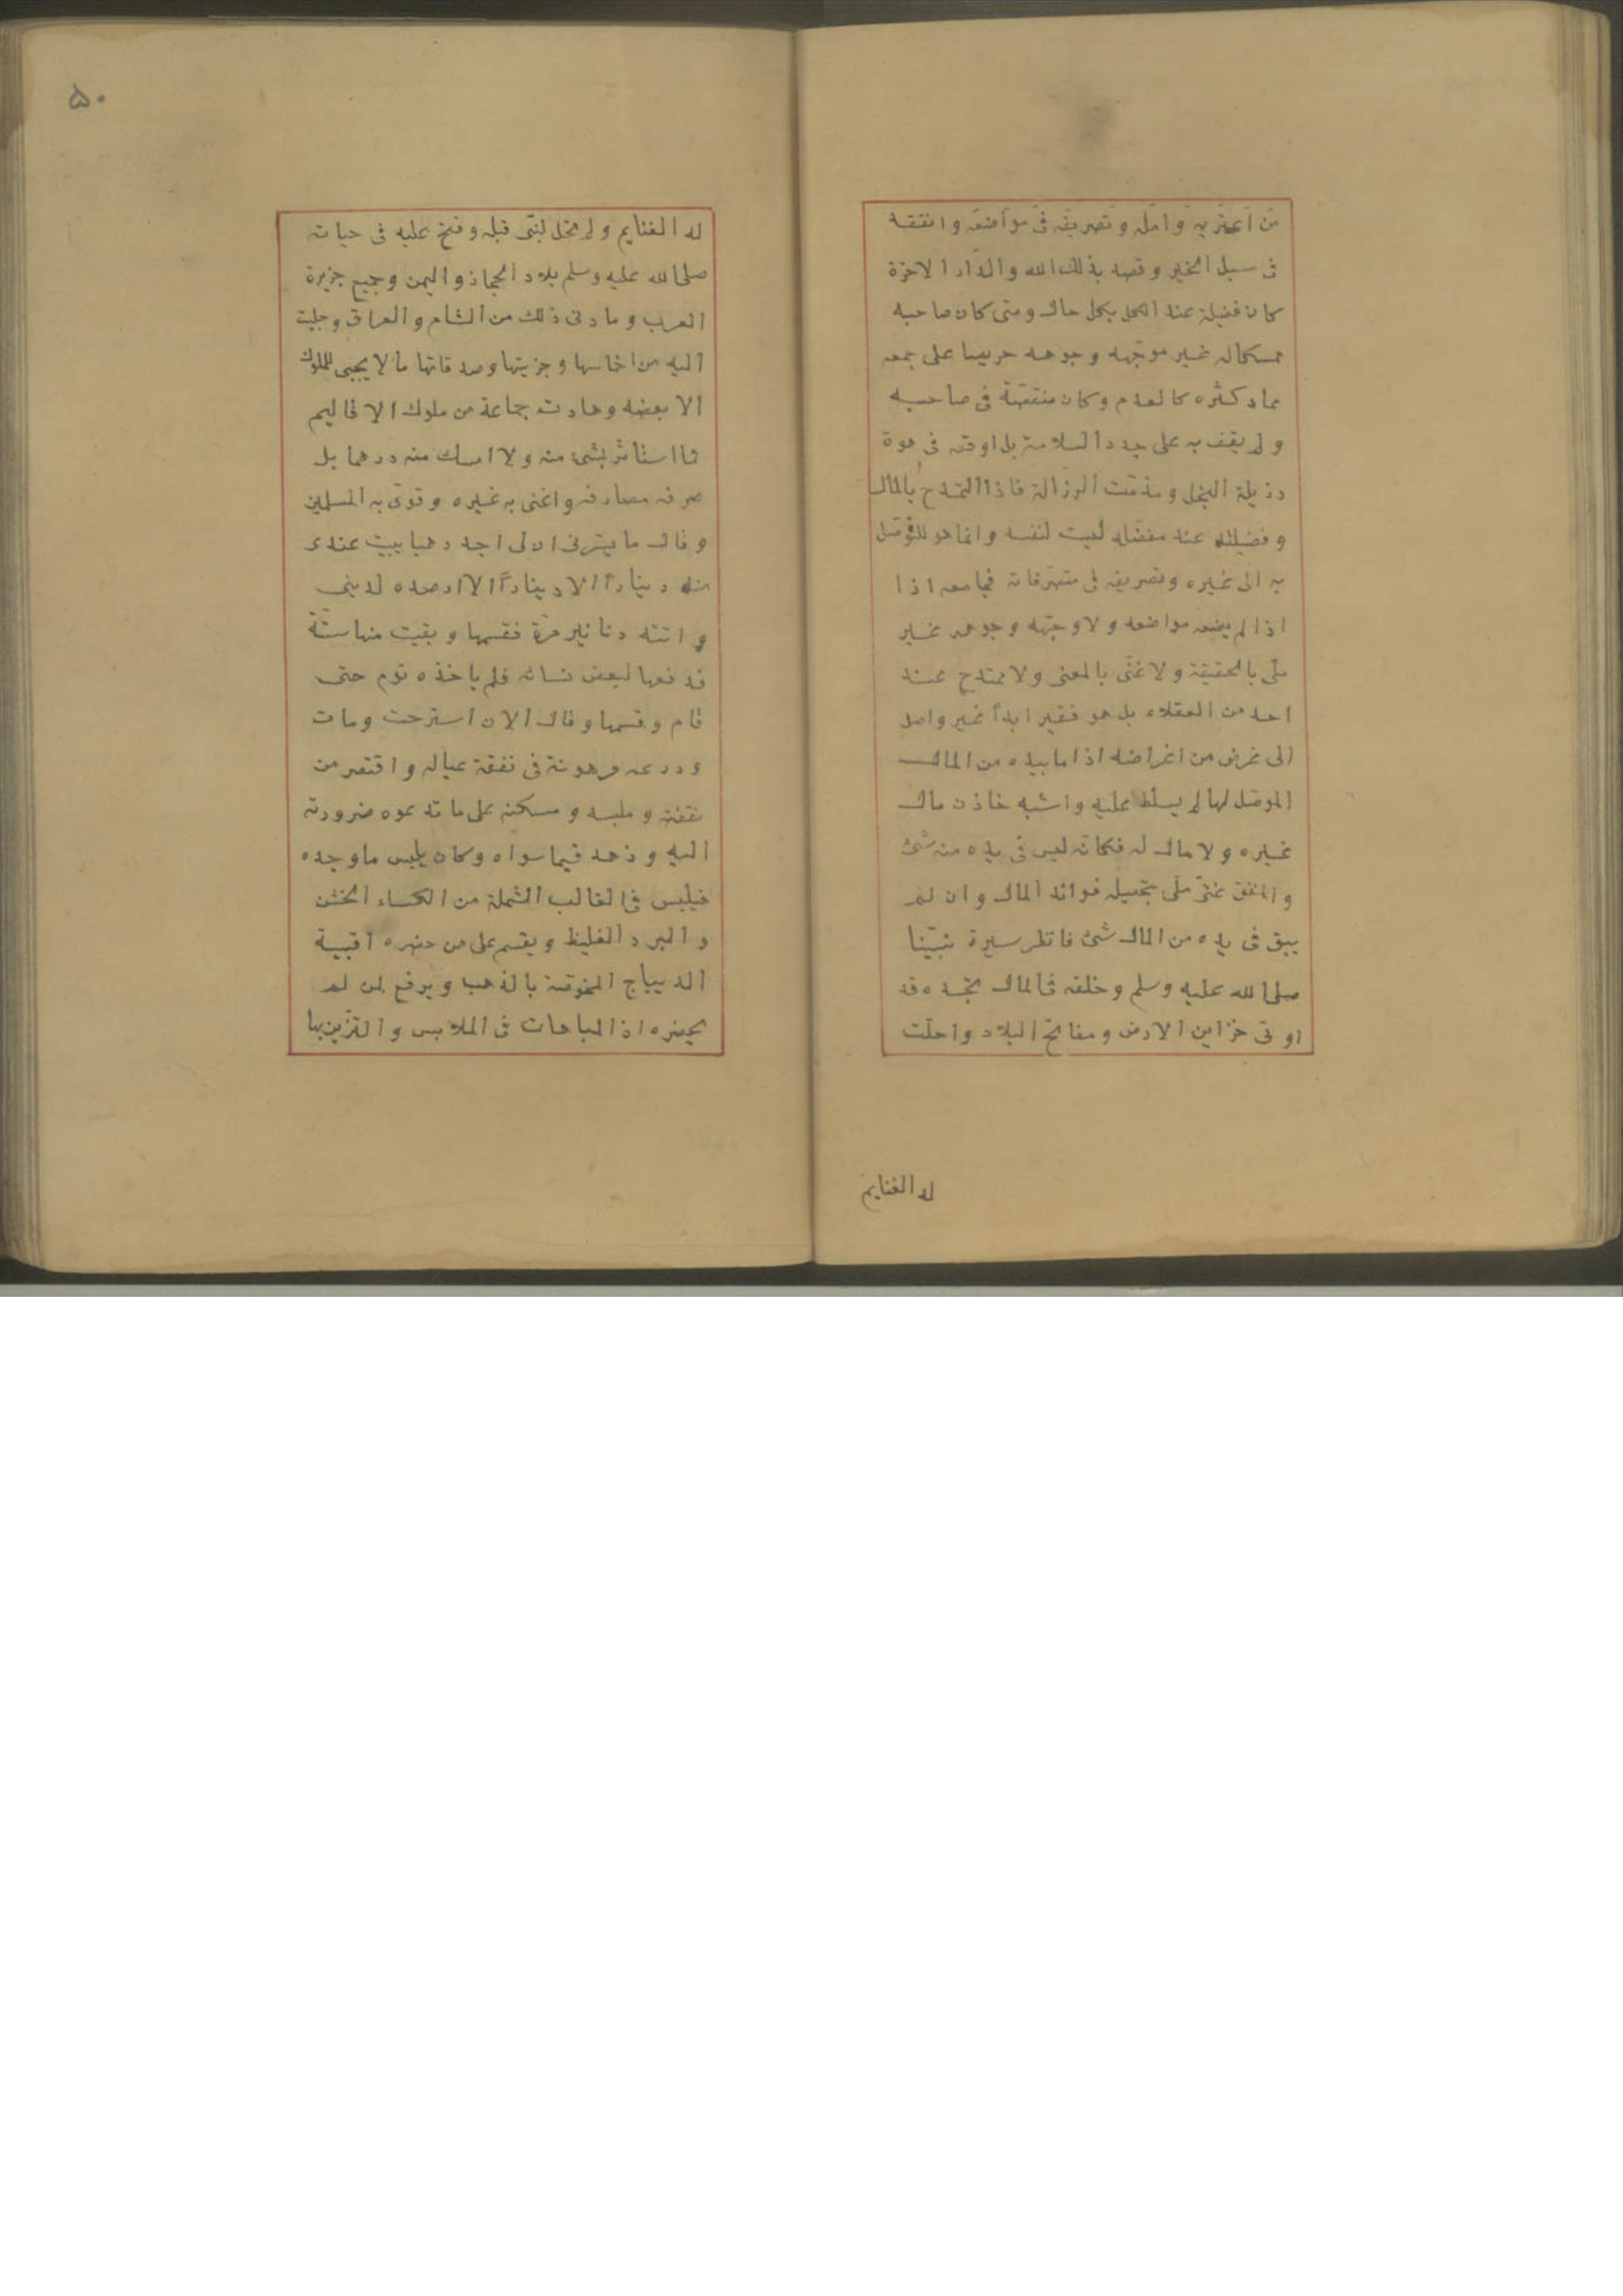 من اعتر به وامله وتصريفه فى مواضعه وانفقه
فى سبيل الخير وقصد بذلك الله والدار الاخرة
كان فضيلة عند الكل بكل حال ومتى كان صاحبه
ممسكاله غير موجّهه وجوهه حريصا على جمعه
عاد كثره كالعدم وكان منقصة فى صاحبه
ولم يقف به على جدد السلامة بل اوقعه فى هوة
رذيلة البخل ومذمّت الرزالة فاذا التمدّح بالمال
وفضيلته عند مفضّله ليست لنفسه وانما هو للتوصّل
به الى غيره وتصريفه فى متصرّفاته فجامعه اذا
اذا لم يضعه مواضعه ولا وجّهه وجوهه غير
ملى بالحقيقة ولا غنّى بالمعنى ولا ممتدح عند
احد من العقلاء بل هو فقير ابدآ غير واصل
الى غرض من اغراضه اذ ما بيده من المال
الموصّل لها لم يسلّط عليه واشبه خازن مال
غيره ولا مال له فكانه ليس فى يده منه شئ
والمنفق غنىّ ملى بتحصيله فوائد المال وان لم
يبق فى يده من المال شئ فانظر سيرة نبيّنا
صلى الله عليه وسلم وخلقه فى المال تجده قد
اوتى خزاين الارض ومفاتح البلاد واحلّت
له الغنايم
۵۰
له الغنايم ولم تحل لنبّى قبله وفتح عليه فى حياته
صلى الله عليه وسلم بلاد الحجاز واليمن وجميع جزيرة
العرب وما دنى ذلك من الشام والعراق وجلبت
اليه من اخماسها وجزيتها وصدقاتها ما لا يجبى للملوك
الا بعضه وهادته جماعة من ملوك الاقاليم
فما استاثر بشئ منه ولا امسك منه درهما بل
صرفه مصارفه واغنى به غيره وقوّى به المسلمين
وقال ما يسّرنى ان لى احد ذهبا يبيت عندى
منه دينارآ الا دينارآ الا ارصده لدينى
واتته دنانير مرّة فقسمها وبقيت منها ستّة
فدفعها لبعض نسائه فلم ياخذه نوم حتى
قام وقسمها وقال الان استرحت ومات
ودرعه مرهونة فى نفقة عياله واقتصر من
نفقته وملبسه ومسكنه على ما تدعوه ضرورته
اليه وزهد فيما سواه وكان يلبس ما وجده
فيلبس فى الغالب الشملة من الكساء الخشن
والبرد الغليظ ويقسم على من حضره اقبية
الديباج المخوّصة بالذهب ويرفع لمن لم
يحضره اذ المباهات فى الملابس والتزّين بها